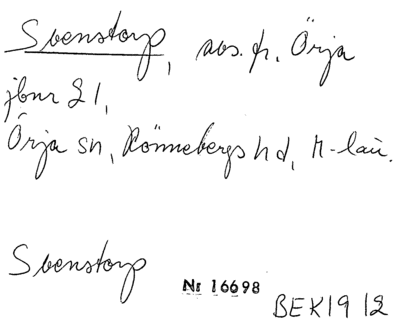 Svenstorp, avs. fr. Örja
jbnr 21,
Örja sn, Rönnebergs hd, M-län.
Svenstorp
Nr 16698
BEK1912